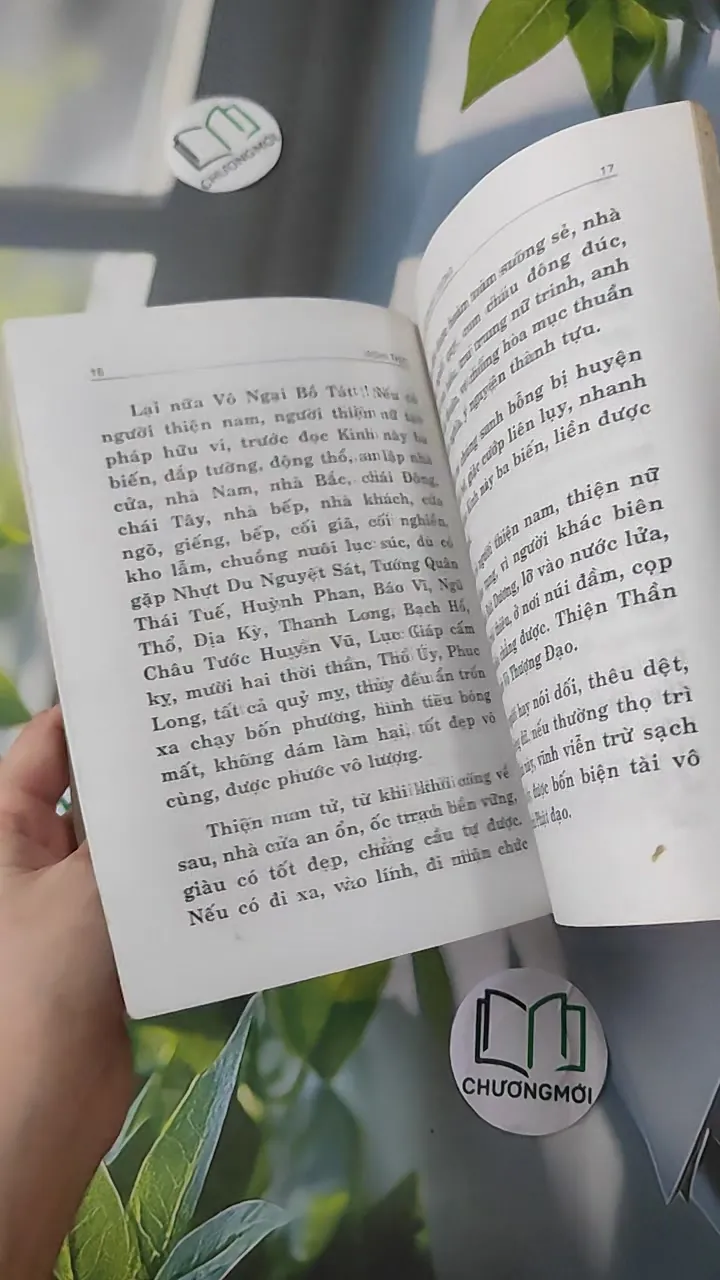 CHƯƠNGMỚI
16
Lại nữa Vô Ngại Bồ Tát! Nếu có
người thiện nam, người thiện nữ tạo
pháp hữu vi, trước đọc Kinh này ba
biến, đắp tường, động thổ, an lập nhà
cửa, nhà Nam, nhà Bắc, chái Đông,
chái Tây, nhà bếp, nhà khách, cửa
ngõ, giếng, bếp, cối giã, cối nghiền,
kho lẫm, chuồng nuôi lục súc, dù có
gặp Nhựt Du Nguyệt Sát, Tướng Quân
Thái Tuế, Huỳnh Phan, Báo Vĩ, Ngũ
Thổ, Địa Kỳ, Thanh Long, Bạch Hổ,
Châu Tước Huyền Vũ, Lục Giáp cấm
kỵ, mười hai thời thần, Thổ Úy, Phục
Long, tất cả quỷ mỵ, thủy đều ẩn trốn
xa chạy bốn phương, hình tiêu bóng
mất, không dám làm hại, tốt đẹp vô
cùng, được phước vô lượng.
Thiện nam tử, từ khi khởi công về
sau, nhà cửa an ổn, ốc trạch bền vững,
giàu có tốt đẹp, chẳng cầu tự được.
Nếu có đi xa, vào lính, đi nhận chức
17
sướng sẻ, nhà
con cháu đông đúc,
trai trung nữ trinh, anh
vợ chồng hòa mục thuần
nguyện thành tựu.
chúng sanh bỗng bị huyện
giặc cướp liên lụy, nhanh
Kinh này ba biến, liền được
người thiện nam, thiện nữ
vì người khác biên
Dương, lỡ vào nước lửa,
ở nơi núi đầm, cọp
chẳng được. Thiện Thần
Vô Thượng Đạo.
hay nói dối, thêu dệt,
nếu thường thọ trì
này, vĩnh viễn trừ sạch
được bốn biện tài vô
Phật đạo.
CHƯƠNGMỚI